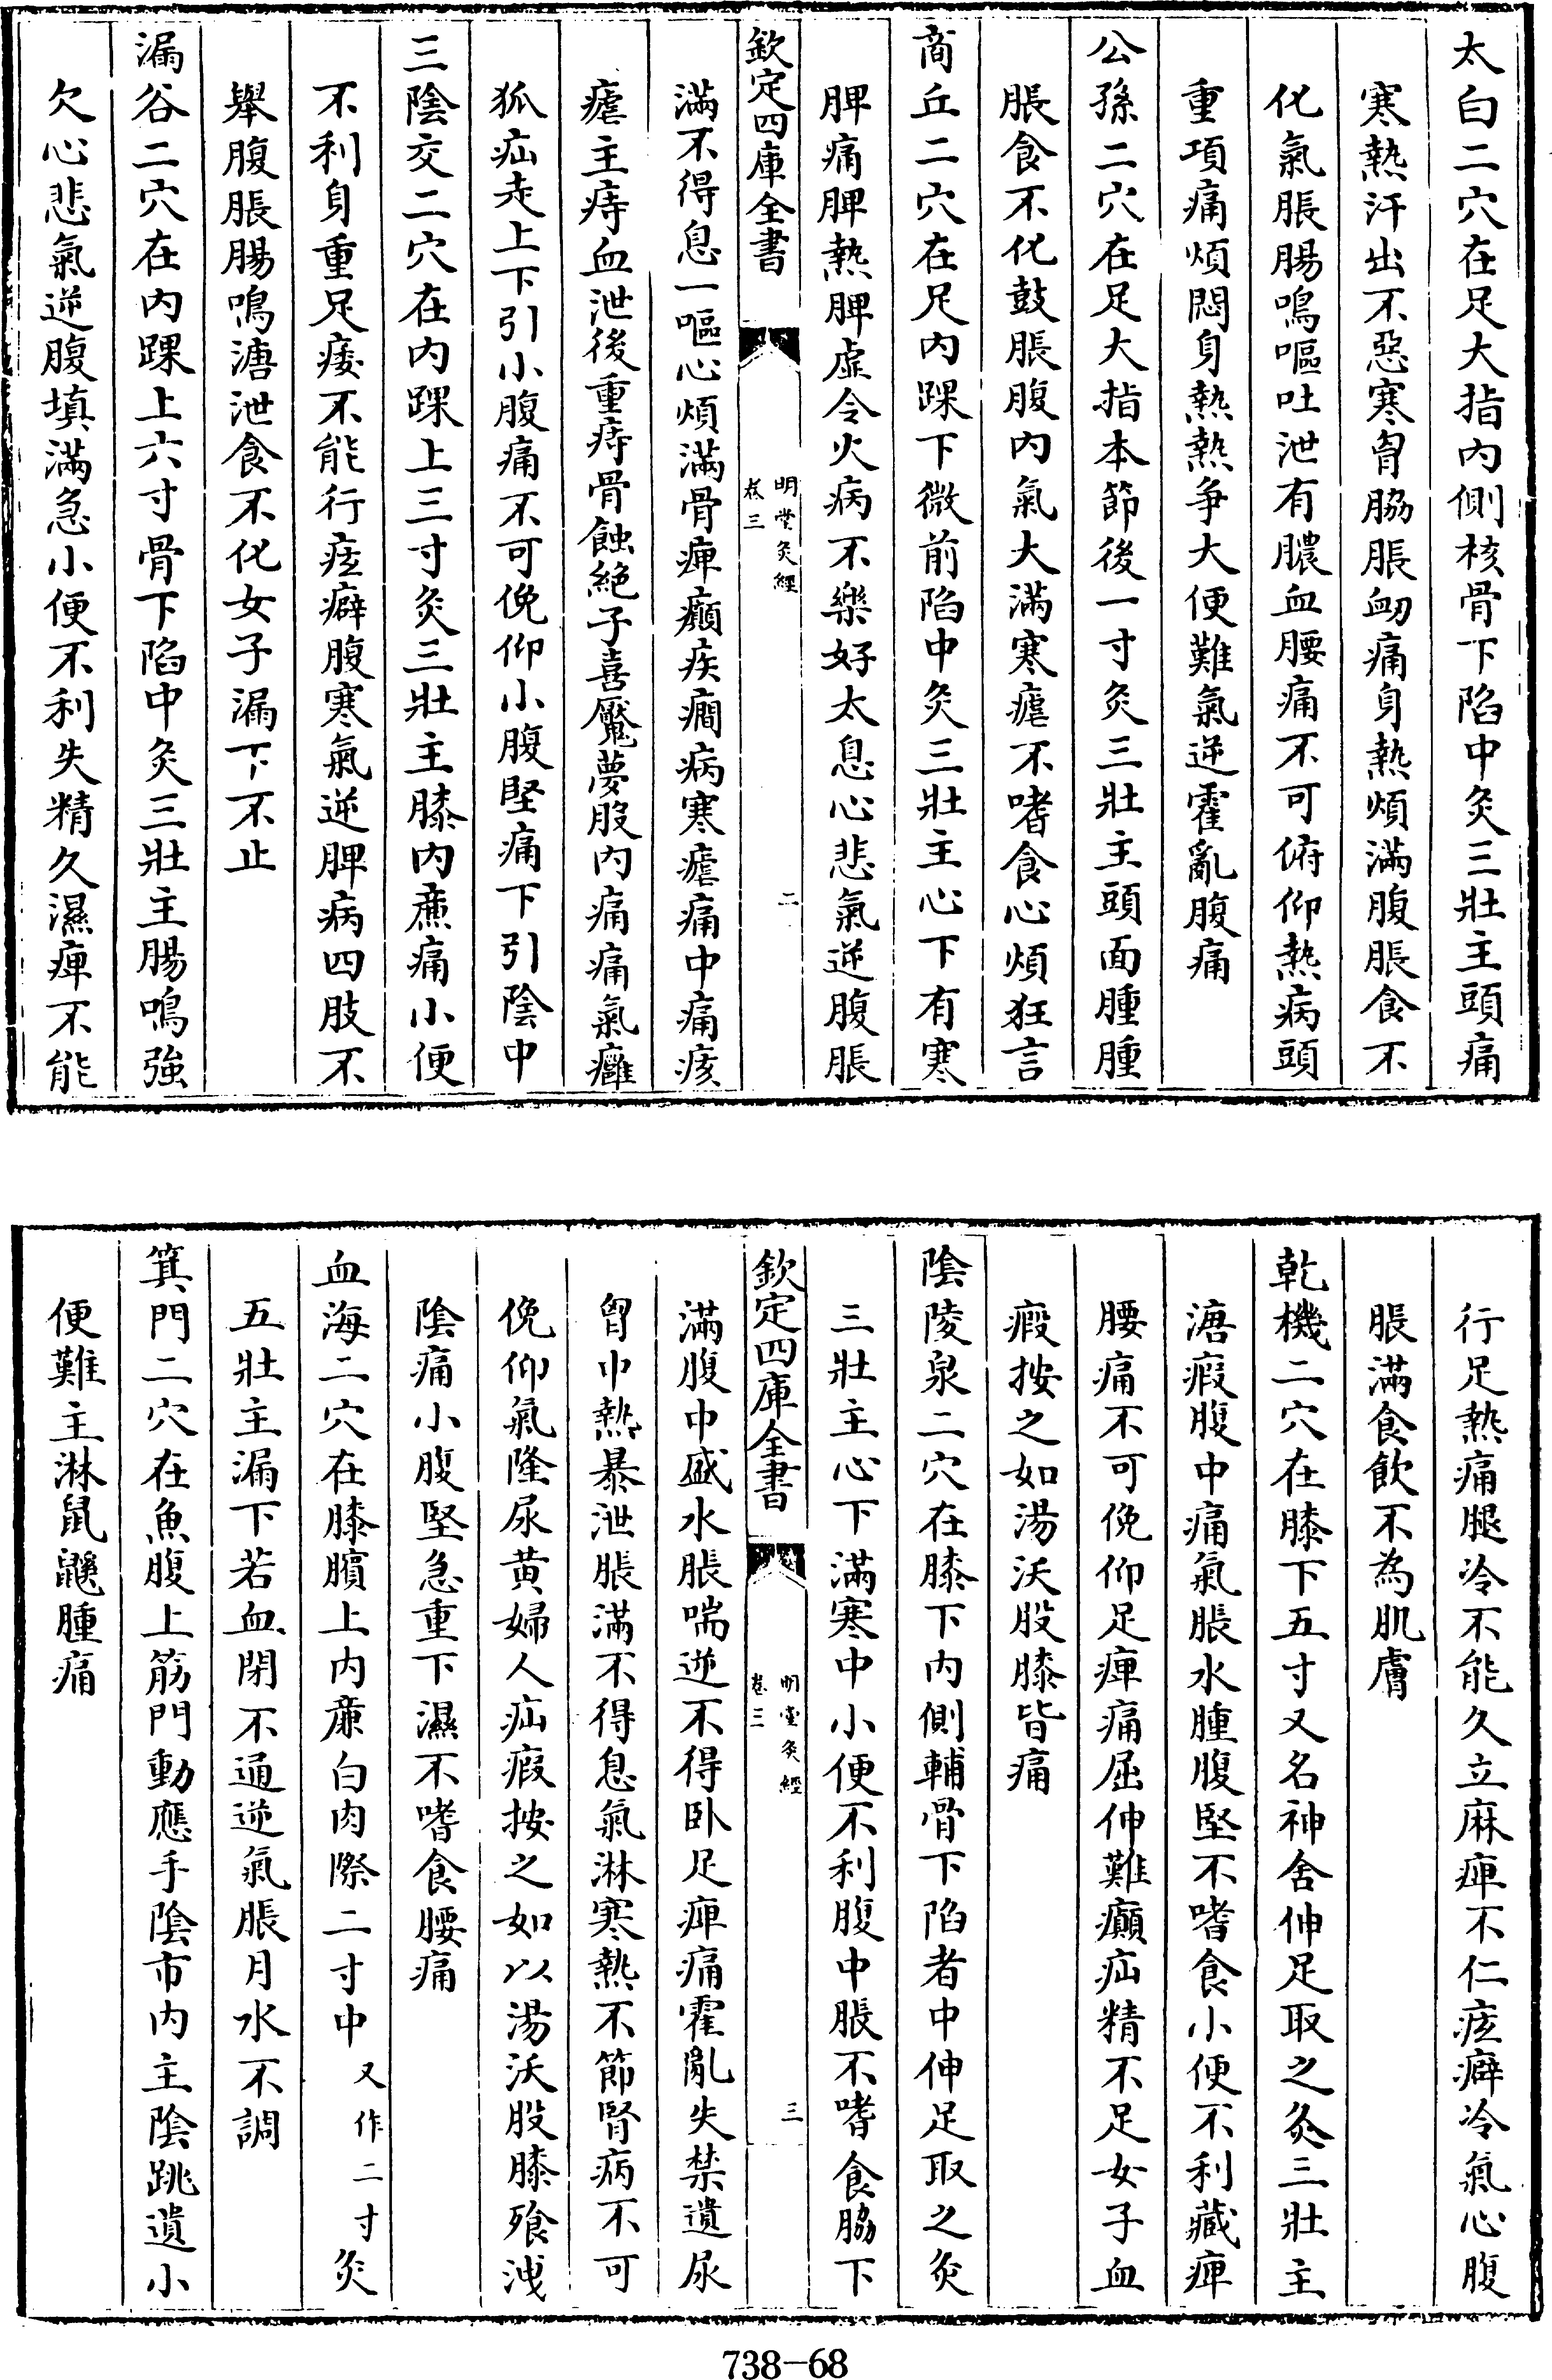 太白二穴在足大指内側核骨下陷中灸三壯主頭痛
寒熱汗出不惡寒胷脇脹㓨痛身熱煩滿腹脹食不
化氣脹腸鳴嘔吐泄有膿血腰痛不可俯仰熱病頭
重項痛煩悶身熱熱争大便難氣逆霍亂腹痛
公孫二穴在足大指本節後一寸灸三壯主頭面腫腫
脹食不化鼓脹腹内氣大滿寒瘧不嗜食心煩狂言
商丘二穴在足内踝下微前陷中灸三壯主心下有寒
脾痛脾熱脾虛令火病不樂好太息心悲氣逆腹脹
欽定四庫全書
明堂灸經
卷三
二
滿不得息一嘔心煩滿骨痺癲疾癎病寒瘧痛中痛痎
瘧主痔血泄後重痔骨蝕絶子喜魘夢股内痛痛氣癰
狐疝走上下引小腹痛不可俛仰小腹堅痛下引陰中
三陰交二穴在内踝上三寸灸三壯主膝内亷痛小便
不利身重足痿不能行痃癖腹寒氣逆脾病四肢不
舉腹脹腸鳴溏泄食不化女子漏下不止
漏谷二穴在内踝上六寸骨下陷中灸三壯主腸鳴強
欠心悲氣逆腹填滿急小便不利失精久濕痺不能
行足熱痛腿冷不能久立麻痺不仁痃癖冷氣心腹
脹滿食飲不為肌膚
乾機二穴在膝下五寸又名神舍伸足取之灸三壯主
溏瘕腹中痛氣脹水腫腹堅不嗜食小便不利藏痺
腰痛不可俛仰足痺痛屈伸難癲疝精不足女子血
瘕按之如湯沃股膝皆痛
陰陵泉二穴在膝下内側輔骨下陷者中伸足取之灸
三壯主心下滿寒中小便不利腹中脹不嗜食脇下
欽定四庫全書
明堂灸經
卷三
三
滿腹中盛水脹喘逆不得卧足痺痛霍亂失禁遺尿
胷巾熱暴泄脹滿不得息氣淋寒熱不節腎病不可
俛仰氣隆尿黄婦人疝瘕按之如以湯沃股膝飱洩
陰痛小腹堅急重下濕不嗜食腰痛
血海二穴在膝臏上内亷白肉際二寸中又作二寸灸
五壯主漏下若血閉不通逆氣脹月水不調
箕門二穴在魚腹上筋門動應手陰市内主陰跳遺小
便難主淋鼠鼷腫痛
738-68